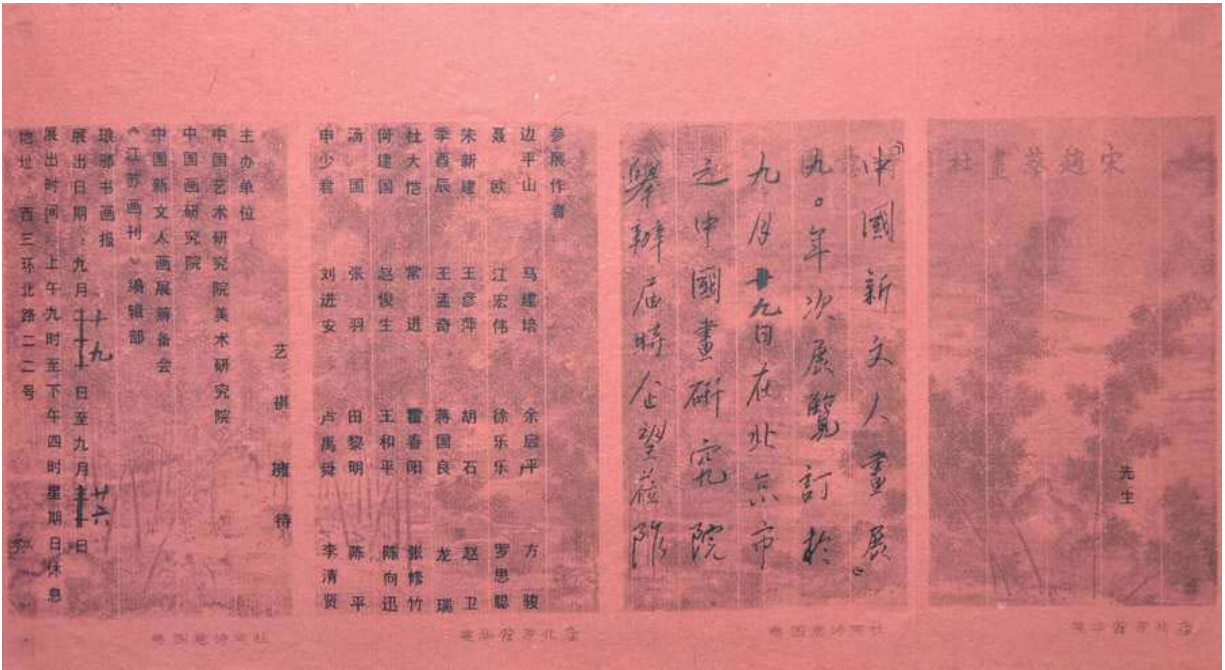 先生
“中國新文人畫展”
九〇年次展覽訂於
九月十九日在北京市
之中國畫研究院
舉辦屆時企望蒞
参展作者
边平山 马建培 余启平 方骏
聂欧 江宏伟 徐乐乐 罗思聪
朱新建 王彦萍 胡石 赵卫
季酉辰 王孟奇 蒋国良 龙瑞
杜大恺 常进 霍春阳 张修竹
何建国 赵俊生 王和平 陈向迅
汤国 张羽 田黎明 陈平
申少君 刘进安 卢禹舜 李清贤
艺祺拥待
主办单位
中国艺术研究院美术研究院
中国画研究院
中国新文人画展筹备会
《江苏画刊》编辑部
琅琊书画报
展出日期：九月十九日至九月廿六日
展出时间：上午九时至下午四时星期日休息
地址：西三环北路二二号